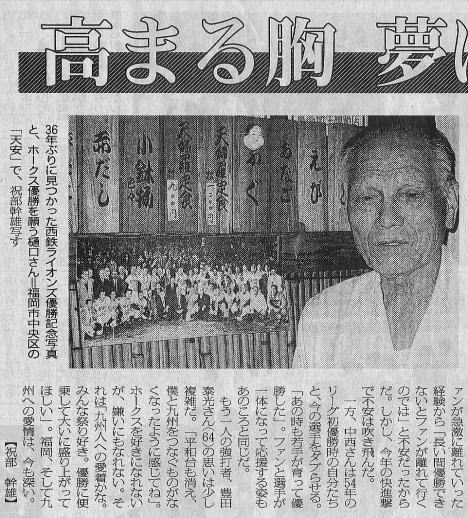 高まる胸 夢
36年ぶりに見つかった西鉄ライオンズ優勝記念写真
と、ホークス優勝を願う樋口さん＝福岡市中央区の
「天安」で、祝部幹雄写す
えび
あなご
天ぷら定食
小鉢物
赤だし
ァンが急激に離れていった
経験から「長い間優勝でき
ないとファンが離れて行く
のでは」と不安だったから
だ。しかし、今年の快進撃
で不安は吹き飛んだ。
一方、中西さんは54年の
リーグ初優勝時の自分たち
と、今の選手をダブらせる。
「あの時も若手が育って優
勝した」。ファンと選手が
一体になって応援する姿も
あのころと同じだ。
もう一人の強打者、豊田
泰光さん（64）の思いは少し
複雑だ。「平和台も消え、
僕と九州をつなぐものがな
くなったように感じてね」。
ホークスを好きになれない
が、嫌いにもなれない。そ
れは「九州人への愛着かな。
みんな祭り好き。優勝に便
乗して大いに盛り上がって
ほしい」。福岡、そして九
州への愛情は、今も深い。
【祝部 幹雄】